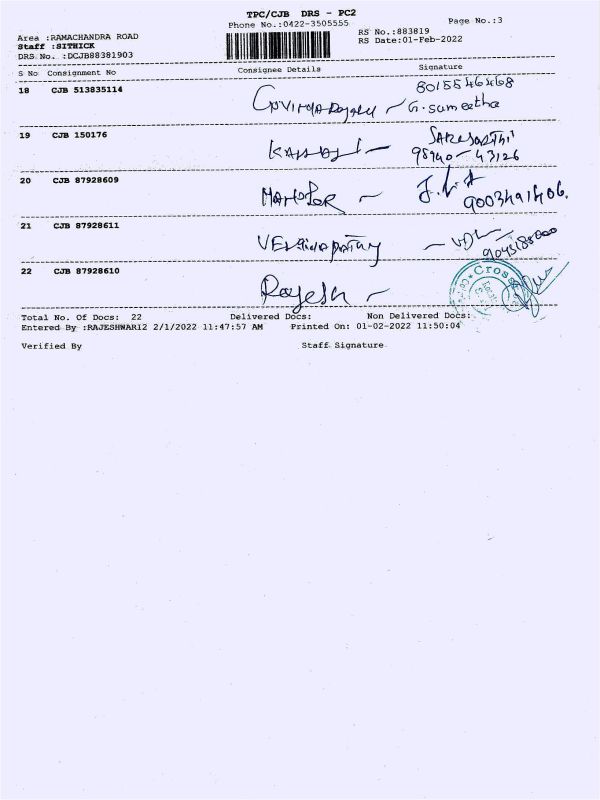 TPC/CJB DRS - PC2
Phone No.:0422-3505555
Page No.:3
Area :RAMACHANDRA ROAD
RS No.:883819
Staff :SITHICK
RS Date:01-Feb-2022
DRS No. :DCJB88381903
S No Consignment No Consignee Details Signature
18 CJB 513835114
8015546468
G. Sumeetha
19 CJB 150176
98940-43126
20 CJB 87928609
21 CJB 87928611
22 CJB 87928610
Rajesh
Cross
Total No. Of Docs: 22 Delivered Docs: Non Delivered Docs:
Entered By :RAJESHWARI2 2/1/2022 11:47:57 AM Printed On: 01-02-2022 11:50:04
Verified By Staff Signature